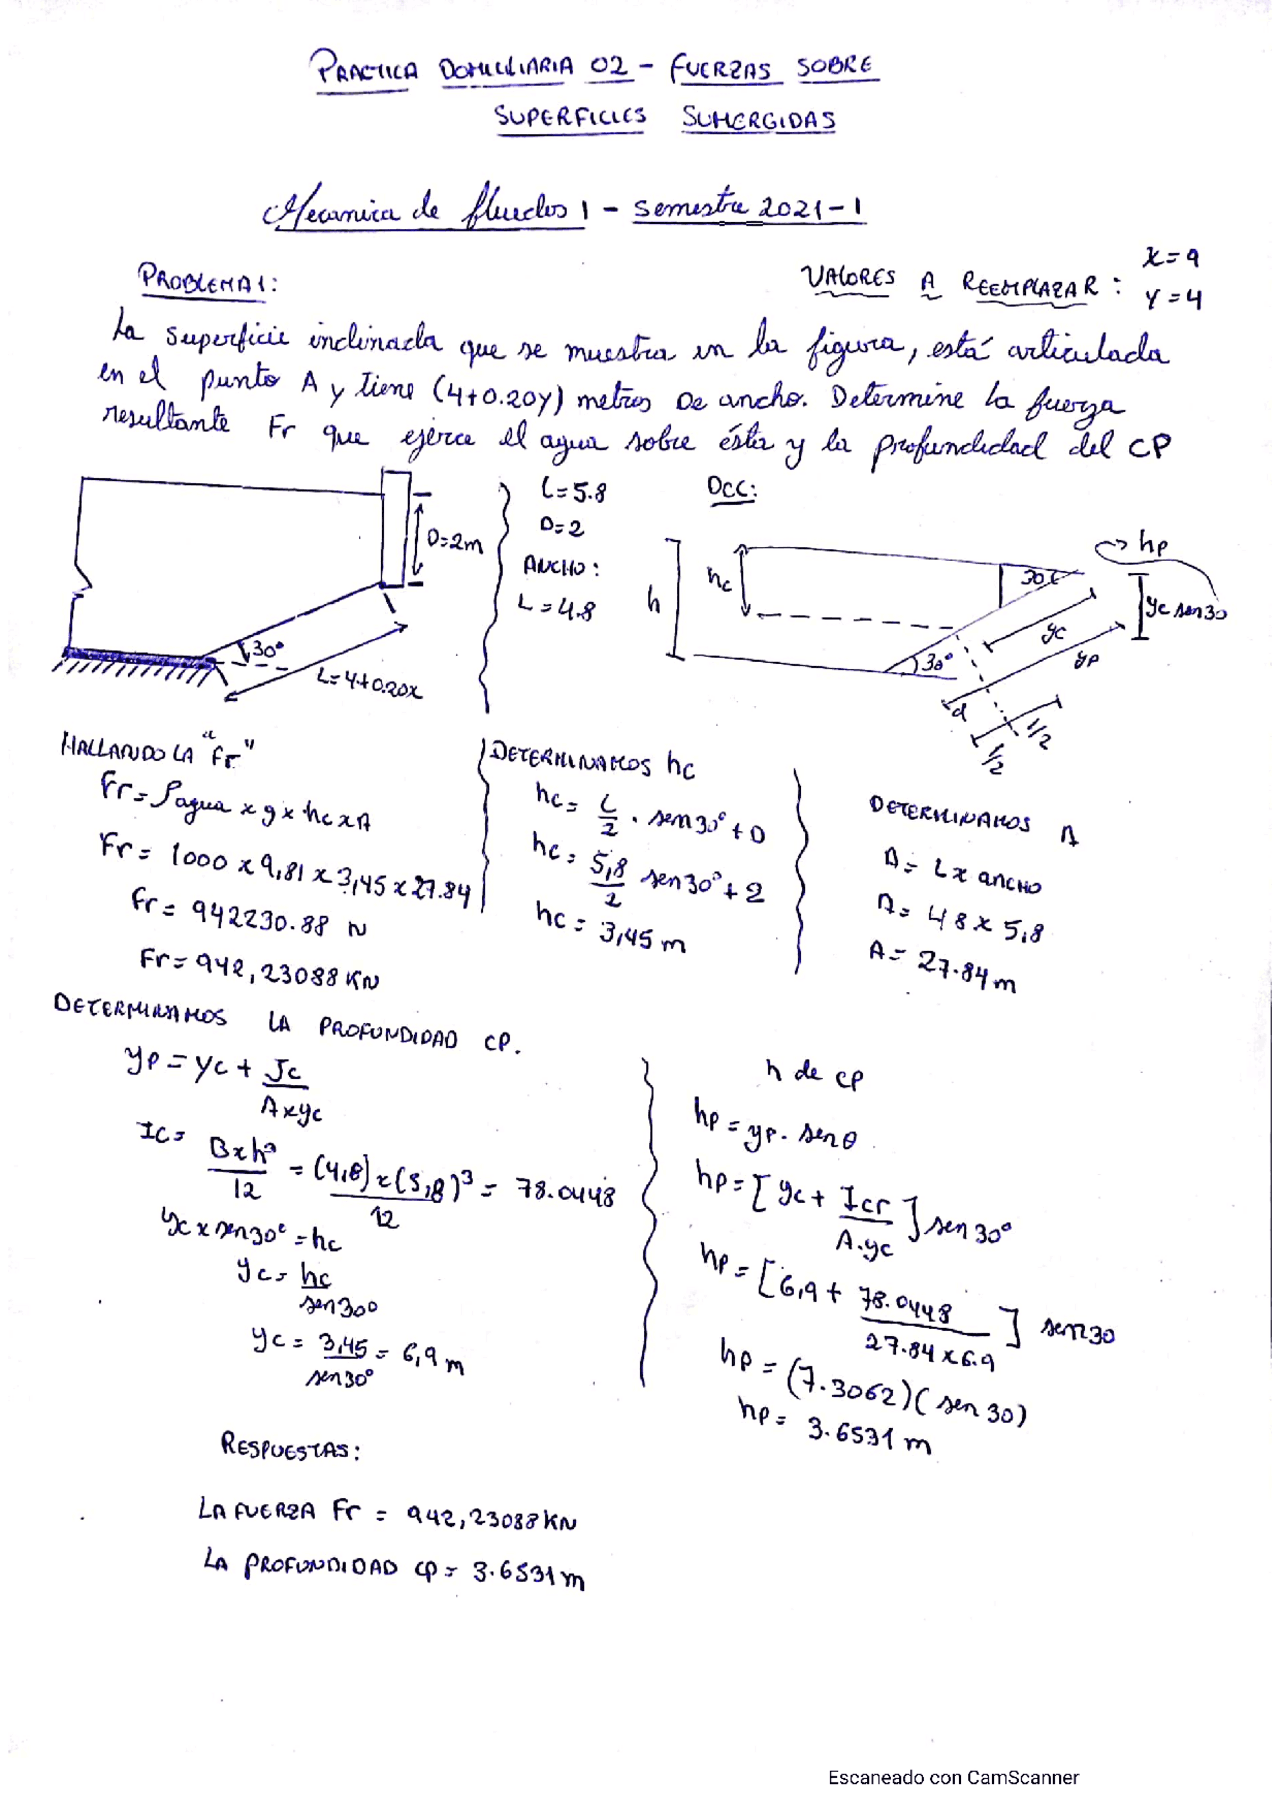 PRACTICA DOMICILIARIA 02 - FUERZAS SOBRE
SUPERFICIES SUMERGIDAS
Mecanica de fluidos 1 - semestre 2021-1
PROBLEMA 1:
VALORES A REEMPLAZAR:
X=9
Y=4
La superficie inclinada que se muestra en la figura, está articulada
en el punto A y tiene (4+0.20Y) metros de ancho. Determine la fuerza
resultante Fr que ejerce el agua sobre ésta y la profundidad del CP
D=2m
30°
L=4+0.20x
L=5.8
D=2
ANCHO:
L=4.8
DCC:
h
hc
30°
hp
yc sen30
yc
yp
30°
d
1/2
1/2
HALLANDO LA "Fr"
Fr=ρagua x g x hc x A
Fr= 1000 x 9,81 x 3,45 x 27.84
Fr= 942230.88 N
Fr= 942,23088 KN
DETERMINAMOS hc
hc= L/2 . sen30° + D
hc= 5,8/2 sen30° + 2
hc= 3,45 m
DETERMINAMOS A
A= L x ancho
A= 48 x 5,8
A= 27.84 m
DETERMINAMOS LA PROFUNDIDAD CP.
yp = yc + Jc/Axyc
Ic= Bxh³/12 = (4,8)x(5,8)³/12 = 78.0448
yc x sen30° = hc
yc= hc/sen30°
yc = 3,45/sen30° = 6,9 m
h de CP
hp = yp. senθ
hp= [yc + Icr/A.yc] sen30°
hp= [6,9 + 78.0448/27.84x6.9] sen30
hp = (7.3062)(sen 30)
hp= 3.6531 m
RESPUESTAS:
LA FUERZA Fr = 942,23088 KN
LA PROFUNDIDAD CP= 3.6531 m
Escaneado con CamScanner